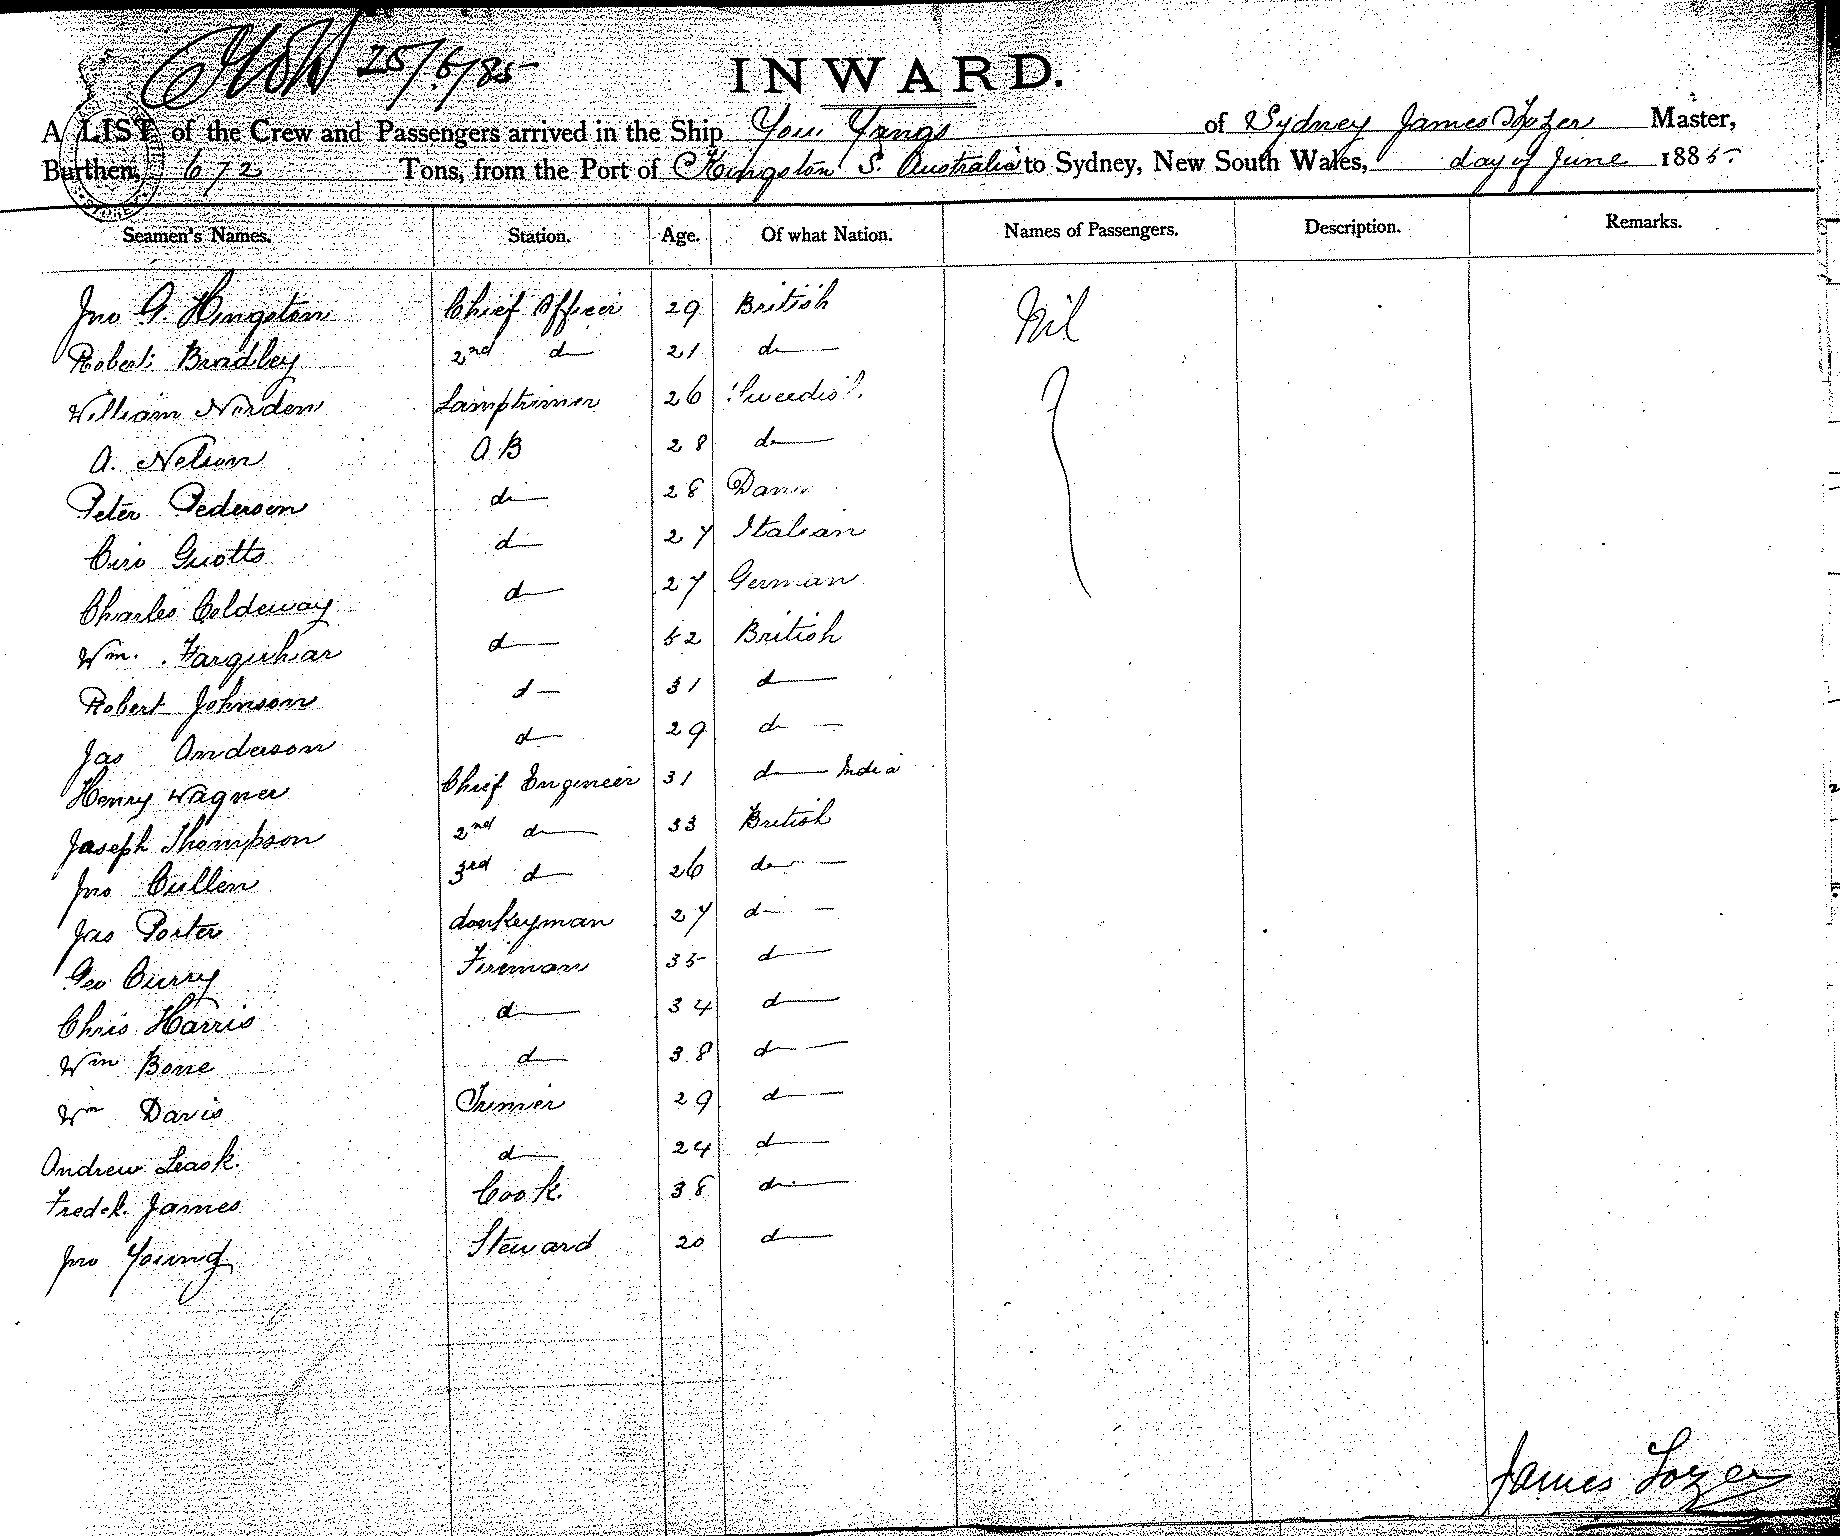 25/6/85
INWARD.
A LIST of the Crew and Passengers arrived in the Ship You Yangs of Sydney James Tozer Master,
Burthen, 672 Tons, from the Port of Kingston S. Australia to Sydney, New South Wales, day of June 1885.
Seamen's Names. Station. Age. Of what Nation. Names of Passengers. Description. Remarks.
Jno G. Hingston Chief Officer 29 British Nil
Robert Bradley 2nd do 21 do
William Norden Lamptrimer 26 Sweedish
A. Nelson AB 28 do
Peter Pederson do 28 Dane
Ciro Guotto do 27 Italian
Charles Coldeway do 27 German
Wm. Farquhar do 52 British
Robert Johnson do 31 do
Jas Anderson do 29 do
Henry Wagner Chief Engineer 31 do India
Joseph Thompson 2nd do 33 British
Jno Cullen 3rd do 26 do
Jas Porter donkeyman 27 do
Geo Curry Fireman 35 do
Chris Harris do 34 do
Wm Bone do 38 do
Wm Davis Trimer 29 do
Andrew Leask do 24 do
Fredek. James Cook 38 do
Jno Young Steward 20 do
James Tozer